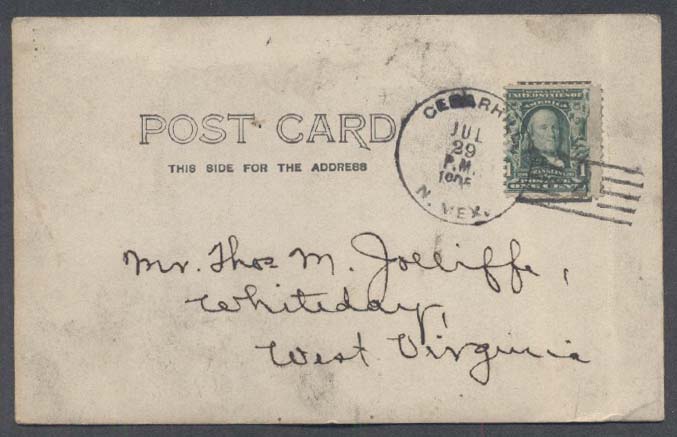 POST CARD
THIS SIDE FOR THE ADDRESS
JUL
29
P.M.
N. MEX.
UNITED STATES OF
AMERICA
1
ONE CENT
Mr. Thos M. Jolliffe,
Whiteday,
West Virginia